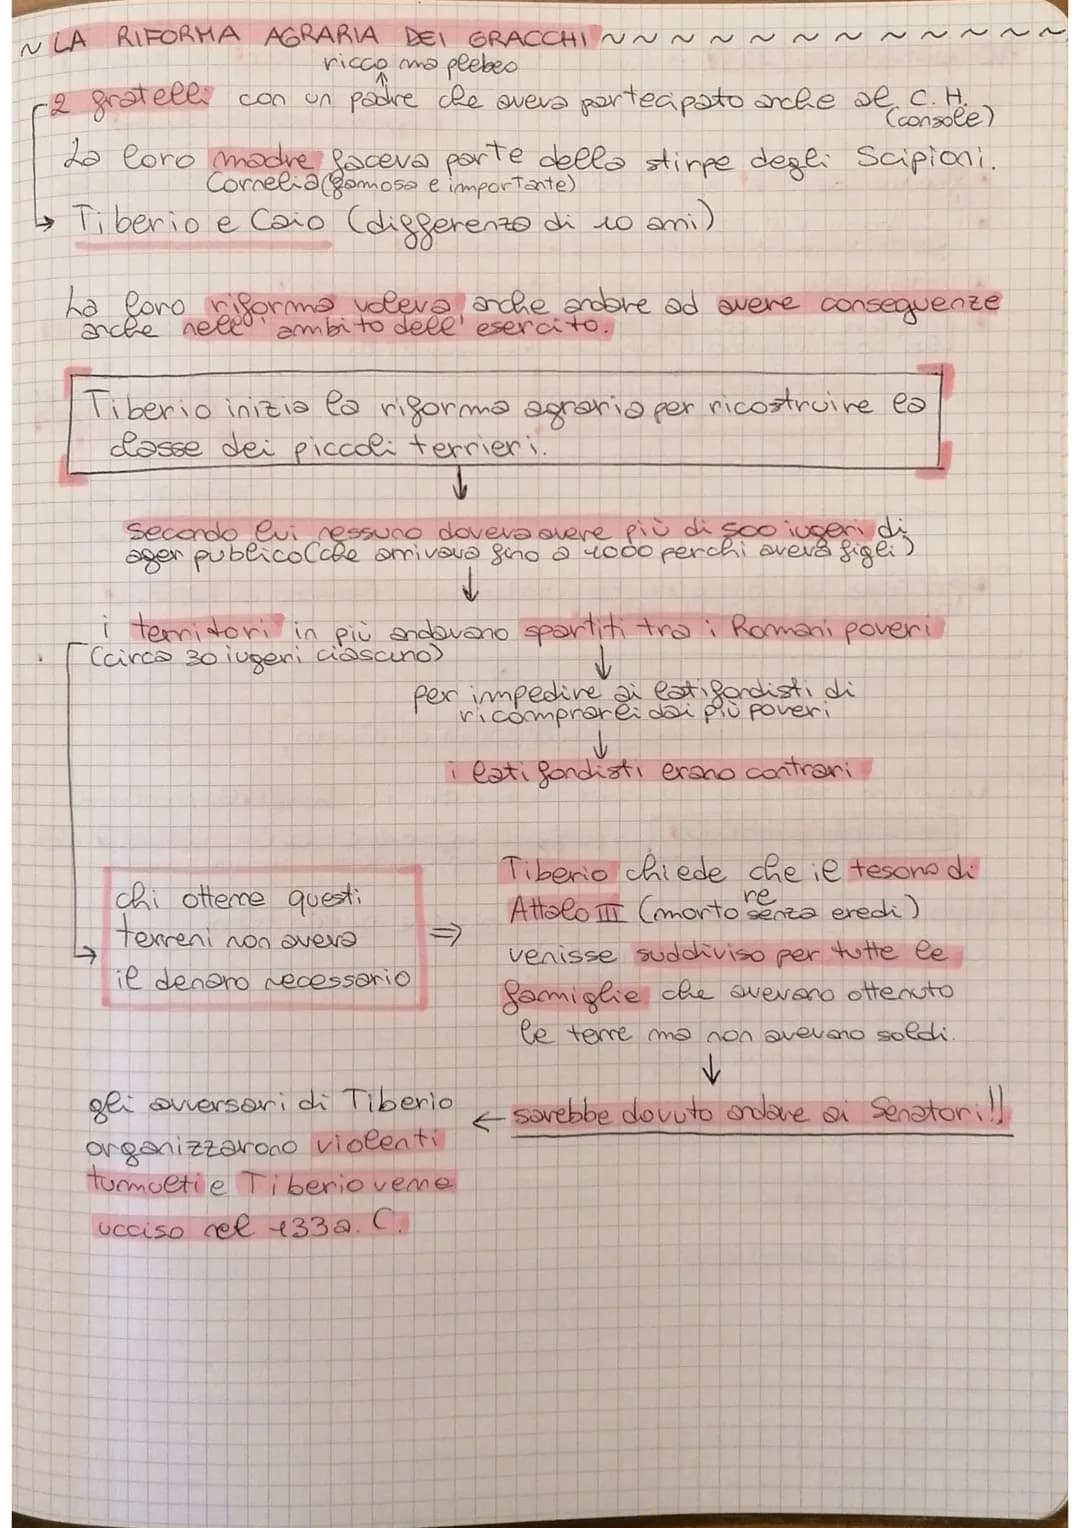 ~ LA RIFORMA AGRARIA DEI GRACCHI ~ ~ ~ ~ ~ ~ ~ ~ ~ ~ ~ ~
ricco ma plebeo
↑
2 fratelli con un padre che aveva partecipato anche al C.H.
(console)
La loro madre faceva parte della stirpe degli Scipioni.
Cornelia (famosa e importante)
→ Tiberio e Caio (differenza di 10 anni)
La loro riforma voleva anche andare ad avere conseguenze
anche nell' ambito dell' esercito.
Tiberio inizia la riforma agraria per ricostruire la
classe dei piccoli terrieri.
↓
Secondo lui nessuno doveva avere più di 500 iugeri di
ager publico (che arrivava fino a 1000 per chi aveva figli)
↓
i territori in più andavano spartiti tra i Romani poveri
(circa 30 iugeri ciascuno)
↓
per impedire ai latifondisti di
ricomprarli dai più poveri
↓
i latifondisti erano contrari
chi ottenne questi
terreni non aveva
il denaro necessario
⇒
Tiberio chiede che il tesoro di
re
Attalo III (morto senza eredi)
venisse suddiviso per tutte le
famiglie che avevano ottenuto
le terre ma non avevano soldi.
↓
← sarebbe dovuto andare ai Senatori!!
gli avversari di Tiberio
organizzarono violenti
tumulti e Tiberio venne
ucciso nel 133 a.C.